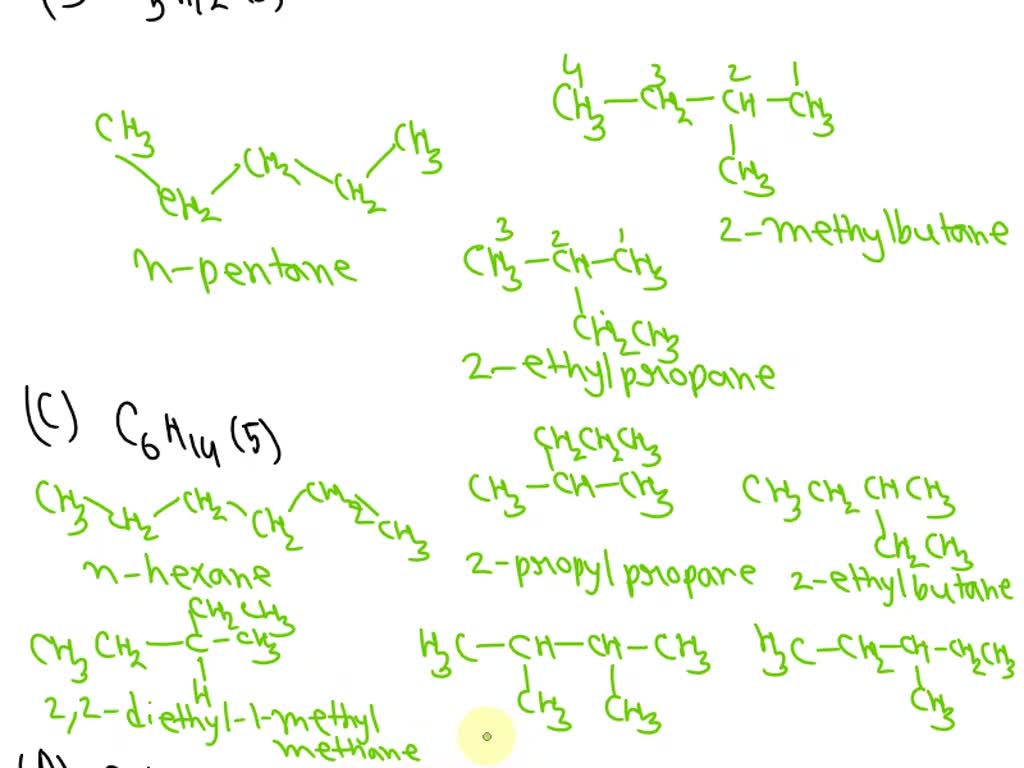 4 3 2 1
CH3-CH2-CH-CH3
CH3
2-methylbutane
CH3 CH2 CH2 CH2 CH3
n-pentane
3 2 1
CH3-CH-CH3
CH2CH3
2-ethylpropane
(C) C6H14 (5)
CH3 CH2 CH2 CH2 CH2 CH3
n-hexane
CH2CH2CH3
CH3-CH-CH3
2-propylpropane
CH3CH2CHCH3
CH2CH3
2-ethylbutane
CH2CH3
CH3CH2-C-CH3
H
2,2-diethyl-1-methyl
methane
H3C-CH-CH-CH3
CH3 CH3
H3C-CH2-CH-CH2CH3
CH3